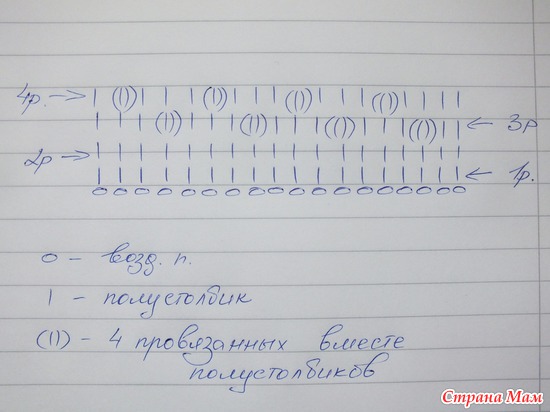 4р. → | (|) | | | (|) | | | (|) | | | (|) | | |
| | | (|) | | | (|) | | | (|) | | | (|) | ← 3р
2р → | | | | | | | | | | | | | | | | | |
| | | | | | | | | | | | | | | | | | ← 1р.
о о о о о о о о о о о о о о о о о о
о - возд. п.
| - полустолбик
(|) - 4 провязанных вместе
полустолбиков
Страна Мам